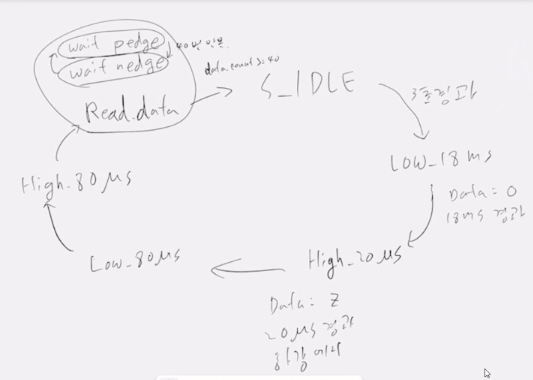 wait pedge
40번 반복
wait nedge
data_count >= 40
Read_data
S_IDLE
3초경과
High_80μs
Low_18ms
Data = 0
18ms 경과
Low_80μs
High_20μs
Data = Z
20μs 경과
하강 에지